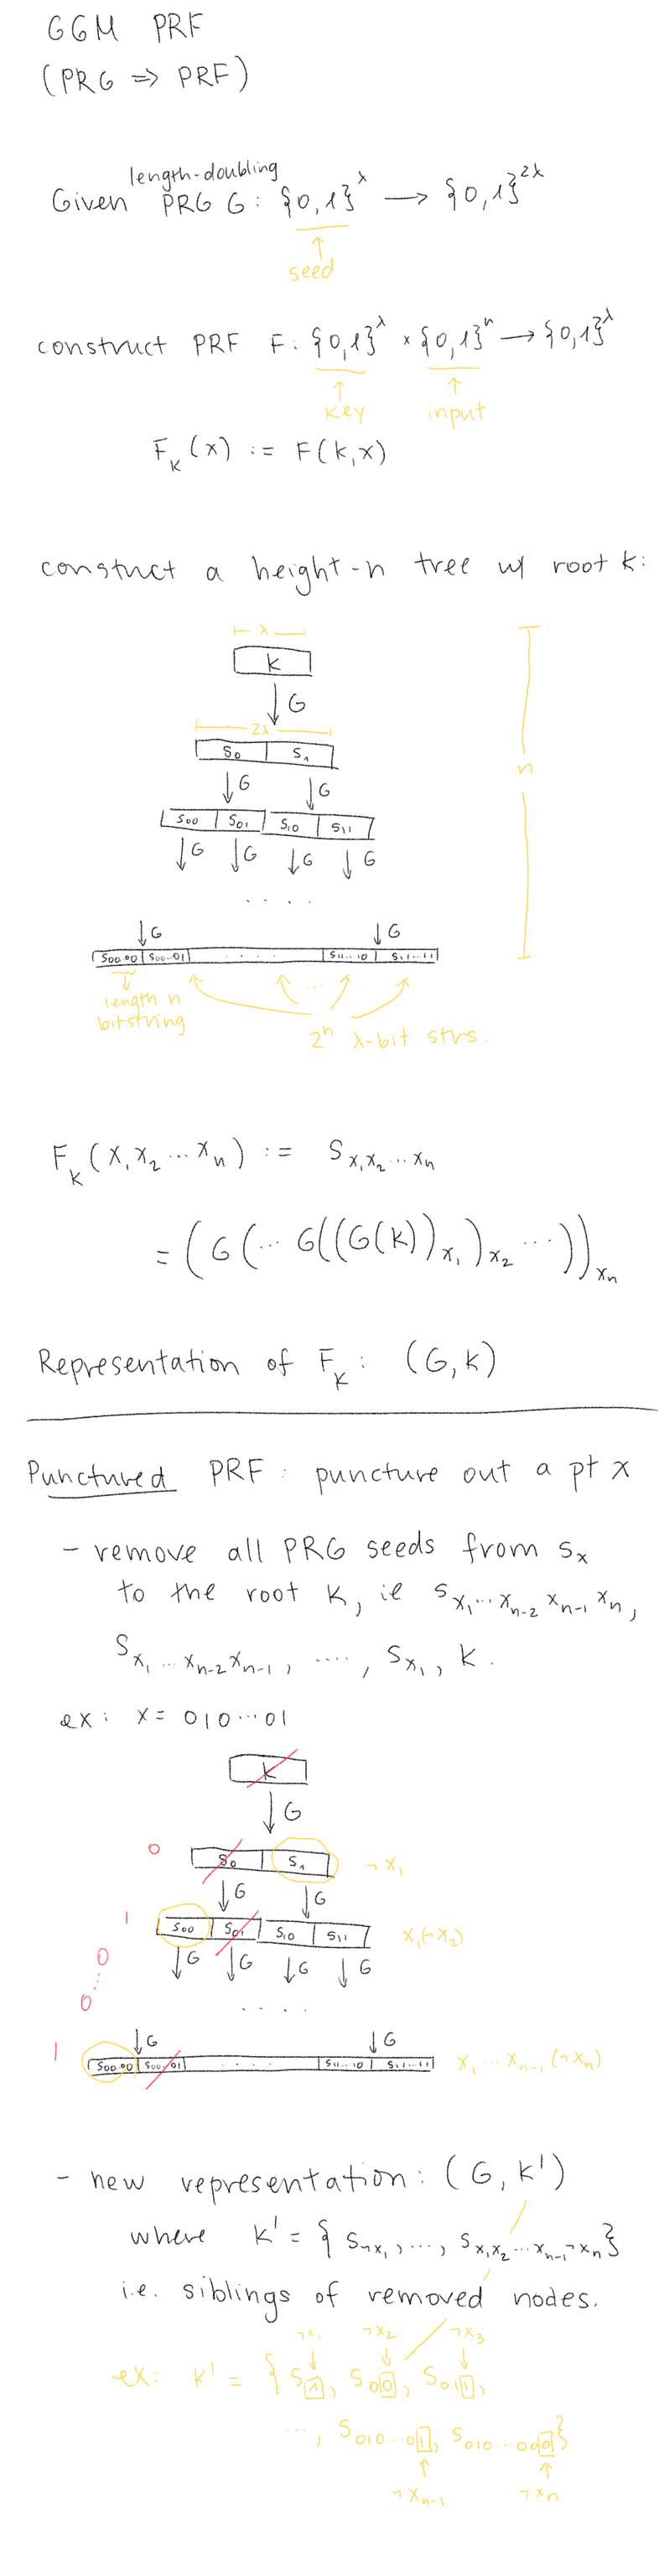 GGM PRF
(PRG => PRF)
length-doubling
Given PRG G: {0,1}^λ → {0,1}^2λ
seed
construct PRF F: {0,1}^λ × {0,1}^n → {0,1}^λ
key input
F_K(x) := F(k,x)
construct a height-n tree w/ root k:
λ
K
G
2λ
S_0 S_1
n
G G
S_00 S_01 S_10 S_11
G G G G
. . . .
G G
S_00..00 S_00..01 . . . . S_11..10 S_11..11
length n
bitstring
2^n λ-bit strs.
F_K(x_1x_2...x_n) := S_x_1x_2...x_n
= (G(... G((G(k))_x_1)_x_2 ...))_x_n
Representation of F_K: (G,k)
Punctured PRF: puncture out a pt x
- remove all PRG seeds from S_x
to the root k, ie S_x_1...x_n-2 x_n-1 x_n,
S_x_1...x_n-2x_n-1, ...., S_x_1, k.
ex: x = 010...01
K
G
0 S_0 S_1 ¬x_1
G G
1 S_00 S_01 S_10 S_11 x_1(¬x_2)
0 G G G G
0 . . . .
G G
1 S_00..00 S_00..01 . . . . S_11..10 S_11..11 x_1...x_n-1(¬x_n)
- new representation: (G, K')
where K' = {S_¬x_1, ..., S_x_1x_2...x_n-1¬x_n}
i.e. siblings of removed nodes.
¬x_1 ¬x_2 ¬x_3
ex: K' = {S_1, S_00, S_011,
..., S_010...01, S_010...000}
¬x_n-1 ¬x_n